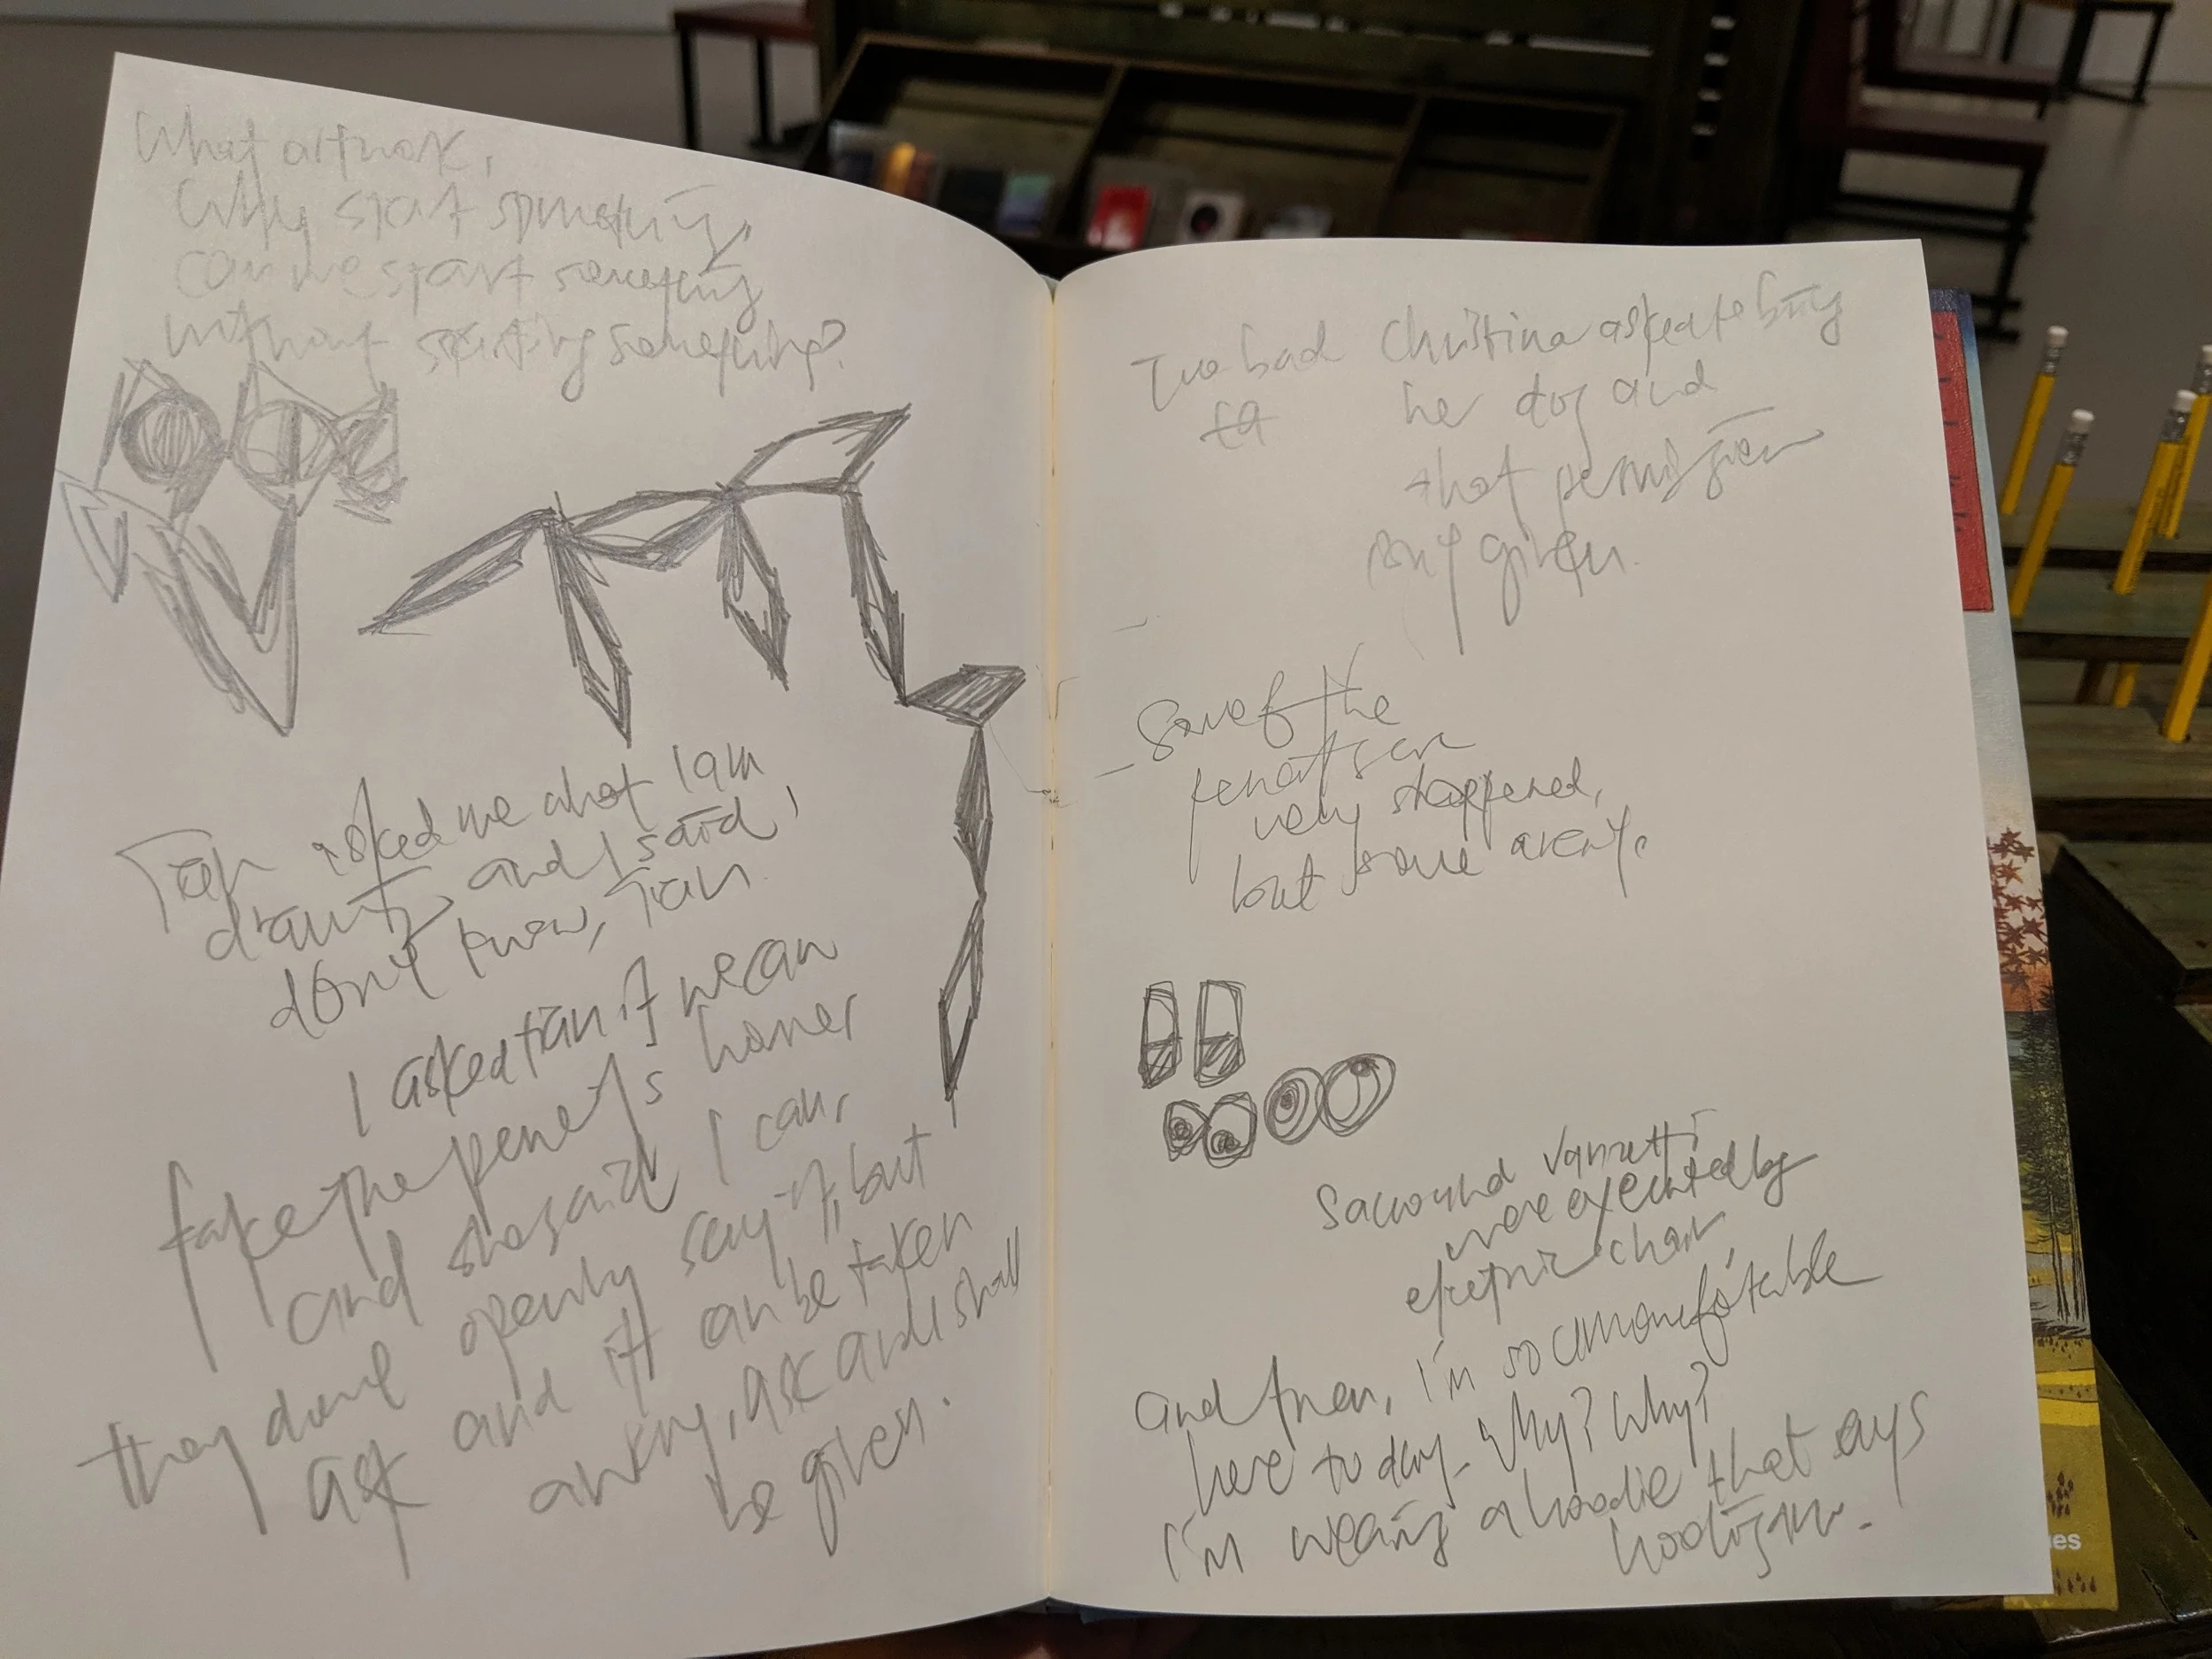 What artwork,
Why start something,
can we start something
without starting something?
Tian asked me what I am
drawing, and I said, I
don't know, Tian.
I asked Tian if we can
take the pencils home
and she said I can,
they don't openly say it, but
ask and it can be taken
ask and I shall
be given.
Too bad Christina asked to bring
her dog and
that permission
isn't given.
Some of the
pencils are
very sharpened,
but some aren't.
Sacco and Vanzetti
were executed by
electric chair,
and then, I'm so
here today. Why? Why?
I'm wearing a hoodie that says
hooligan.
es